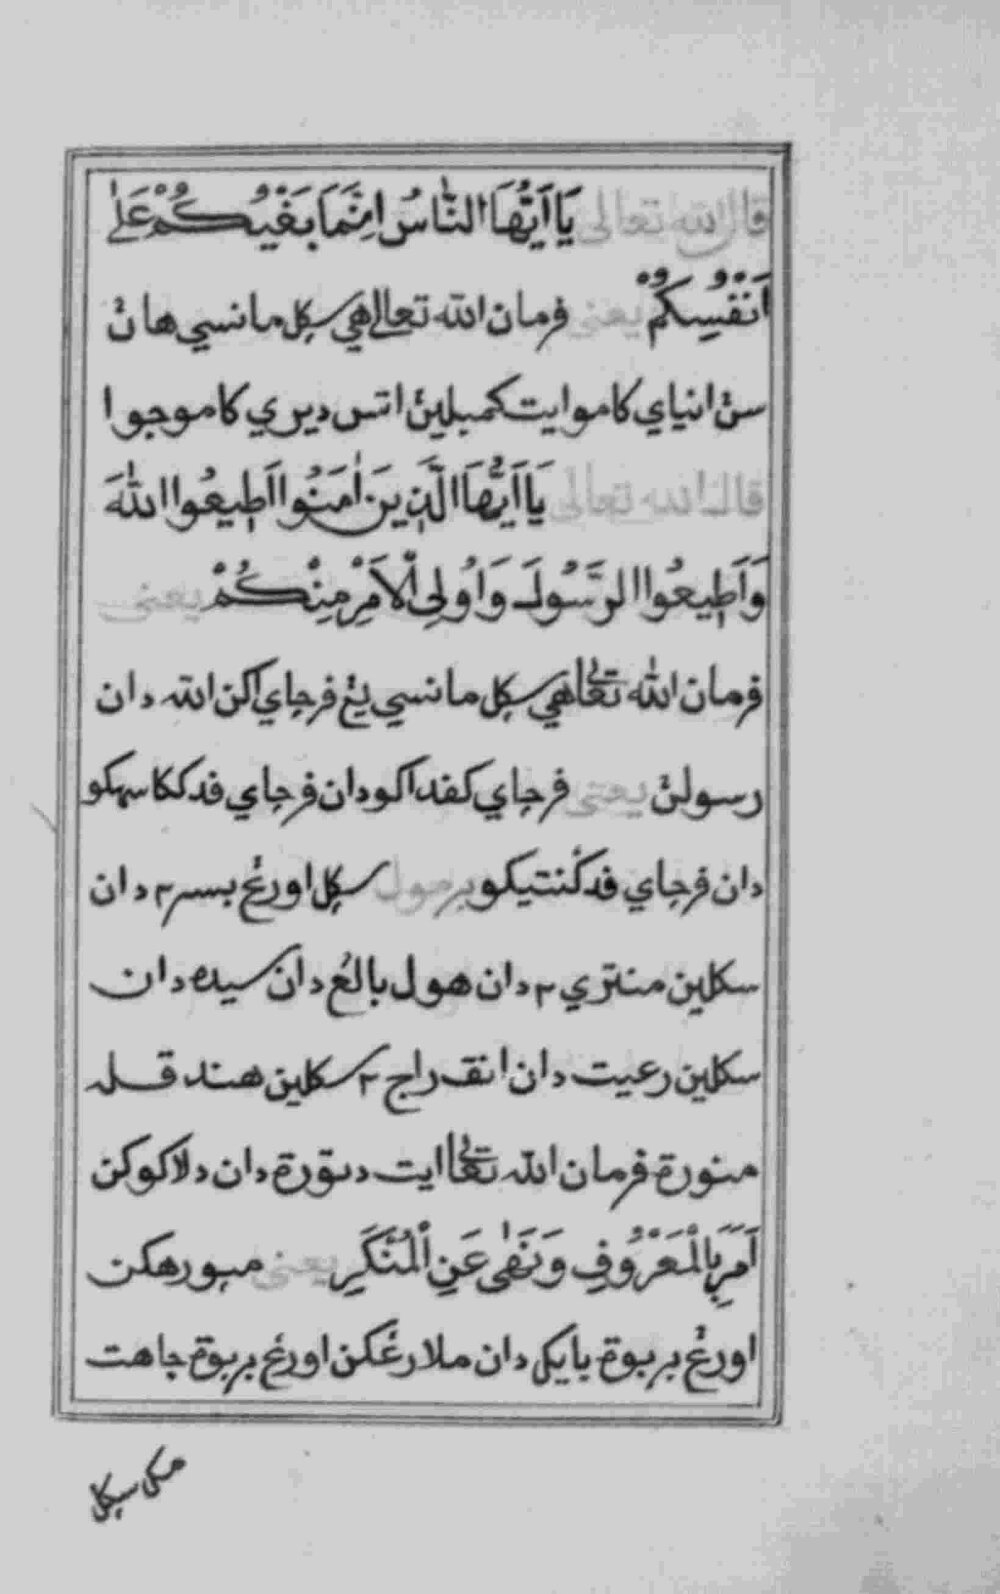 قال الله تعالى يَا اَيُّهَا النَّاسُ اِنَّمَا بَغْيُكُمْ عَلٰى
اَنْفُسِكُمْ يعنى فرمان الله تعالى هي سكل مانسي هاڽ
سڽ انياي كامو ايت كمبلين اتس ديري كامو جوا
قال الله تعالى يَا اَيُّهَا الَّذِينَ اٰمَنُوا اَطِيعُوا اللّٰهَ
وَاَطِيعُوا الرَّسُولَ وَاُولِى الْاَمْرِ مِنْكُمْ يعنى
فرمان الله تعالى هي سكل مانسي يڠ فرچاي اكن الله دان
رسولڽ يعنى فرچاي كفد اكو دان فرچاي فد ككاسهكو
دان فرچاي فد كنتيكو برمول سكل اورڠ بسر٢ دان
سكلين منتري٢ دان هول بالڠ دان سيده دان
سكلين رعيت دان انق راج٢ سكلين هندقله
منورة فرمان الله تعالى ايت دتورة دان دلاكوكن
اَمَرَ بِالْمَعْرُوفِ وَنَهٰى عَنِ الْمُنْكَرِ يعنى مپورهكن
اورڠ بربوة بايكى دان ملارڠكن اورڠ بربوة جاهت
مك سكل